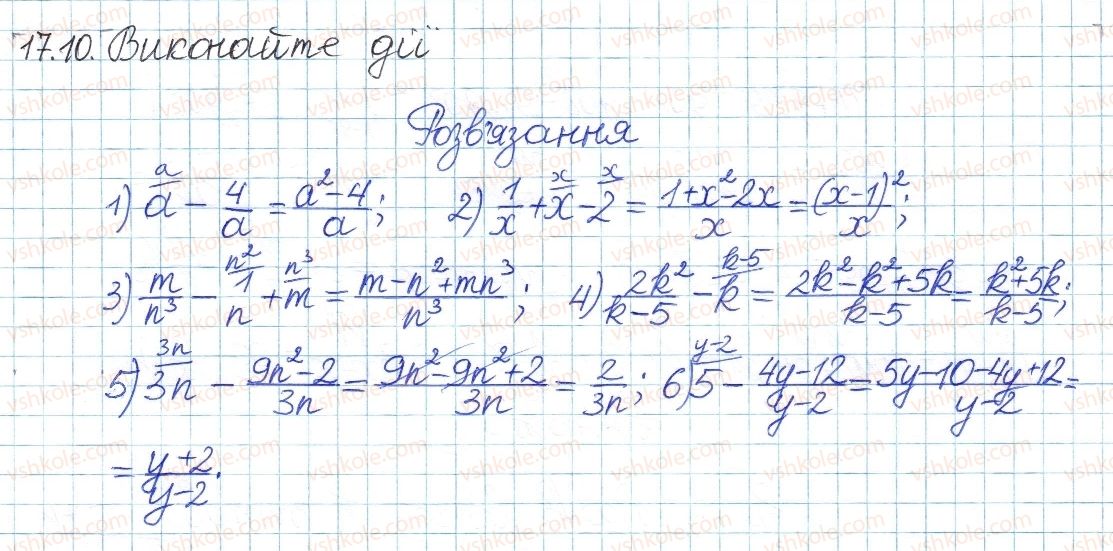 17.10. Виконайте дії
Розв'язання
1) a^{a} - 4/a = (a² - 4)/a; 2) 1/x + x^{x} - 2^{x} = (1 + x² - 2x)/x = (x - 1)²/x;
3) m/n³ - 1^{n²}/n + m^{n³} = (m - n² + mn³)/n³; 4) 2k²/(k - 5) - k^{k-5} = (2k² - k² + 5k)/(k - 5) = (k² + 5k)/(k - 5);
5) 3n^{3n} - (9n² - 2)/3n = (9n² - 9n² + 2)/3n = 2/3n; 6) 5^{y-2} - (4y - 12)/(y - 2) = (5y - 10 - 4y + 12)/(y - 2) =
= (y + 2)/(y - 2).